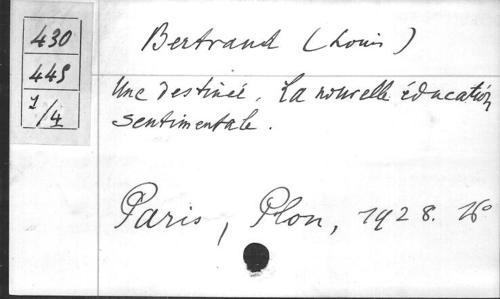 430
445
1/4
Bertrand (Louis)
Une destinée. La nouvelle éducation
sentimentale.
Paris, Plon, 1928. 16º